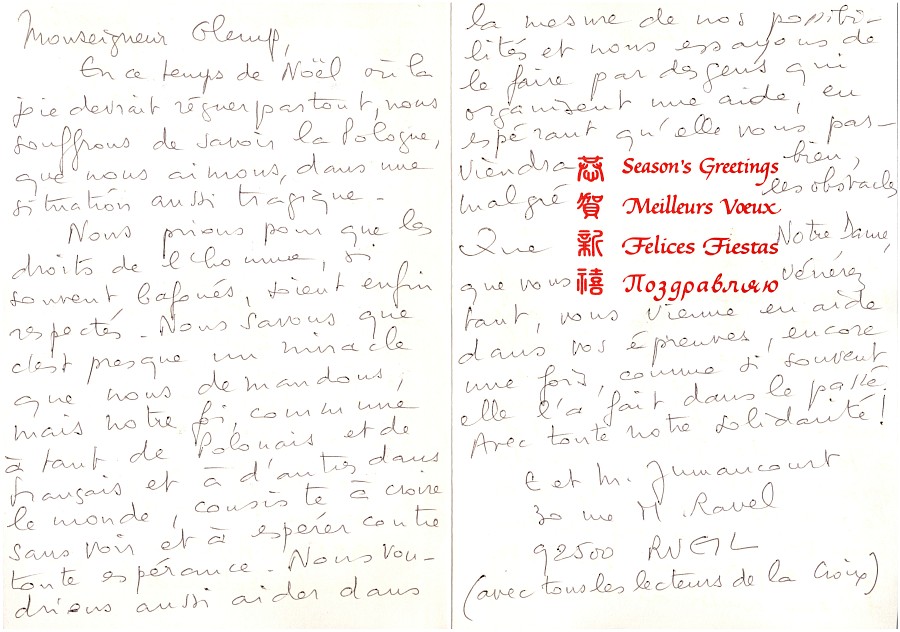 Monseigneur Glemp,
En ce temps de Noël où la
joie devrait régner partout, nous
souffrons de savoir la Pologne,
que nous aimons, dans une
situation aussi tragique.
Nous prions pour que les
droits de l'homme, si
souvent bafoués, soient enfin
respectés. Nous savons que
c'est presque un miracle
que nous demandons,
mais notre foi, commune
à tant de Polonais et de
français et à d'autres dans
le monde, consiste à croire
sans voir et à espérer contre
toute espérance. Nous vou-
drions aussi aider dans
la mesure de nos possibi-
lités et nous essayons de
le faire par des gens qui
organisent une aide, en
espérant qu'elle vous par-
viendra bien,
malgré les obstacles
Que Notre Dame,
que vous vénérez
tant, vous vienne en aide
dans vos épreuves, encore
une fois, comme si souvent
elle l'a fait dans le passé.
Avec toute notre solidarité!
恭賀新禧
Season's Greetings
Meilleurs Vœux
Felices Fiestas
Поздравляю
C et M. Jumancourt
30 rue M Ravel
92500 RUEIL
(avec tous les lecteurs de la Croix)